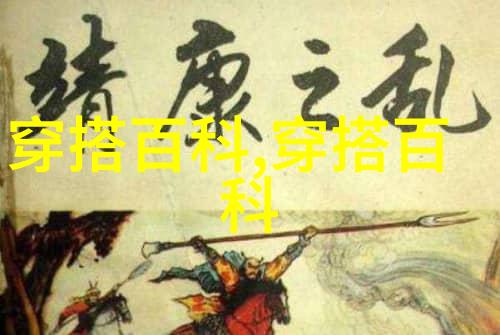 靖康之乱
穿搭百科,穿搭百
科